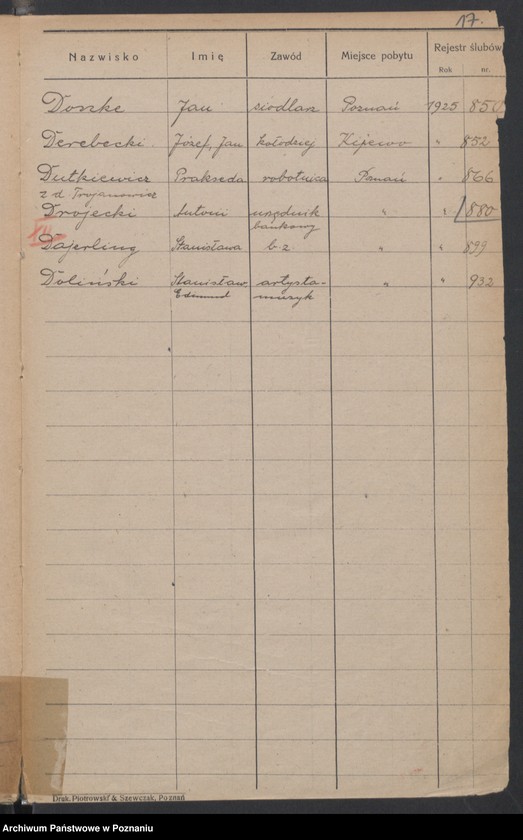 17.
Nazwisko Imię Zawód Miejsce pobytu Rejestr ślubów
Rok nr.
Doszke Jan siodlarz Poznań 1925 850
Derebecki. Józef, Jan kołodziej Kijewo " 852
Dutkiewicz Prakseda robotnica Pznań " 866
z d. Trojanowicz
Drojecki Antoni urzędnik " " 880
bankowy
Dajerling Stanisława b. z. " " 899
Doliński Stanisław, artysta- " " 932
Edmund muzyk
Druk. Piotrowski & Szewczak, Poznań
Archiwum Państwowe w Poznaniu